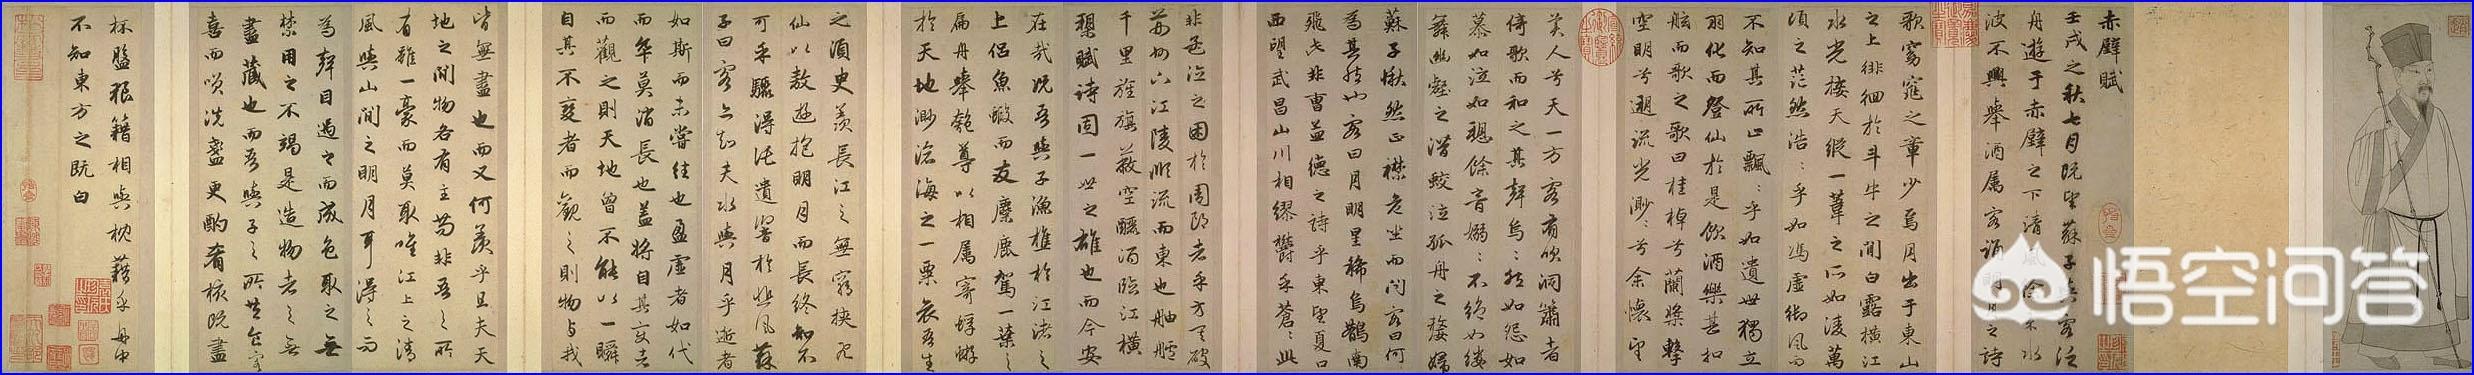 赤壁賦
壬戌之秋七月既望蘇子與客泛
舟遊于赤壁之下清風徐來水
波不興舉酒屬客誦明月之詩
歌窈窕之章少焉月出于東山
之上徘徊於斗牛之間白露橫江
水光接天縱一葦之所如淩萬
頃之茫然浩〻乎如馮虛御風而
不知其所止飄〻乎如遺世獨立
羽化而登仙於是飲酒樂甚扣
舷而歌之歌曰桂棹兮蘭槳擊
空明兮遡流光渺〻兮余懷望
美人兮天一方客有吹洞簫者
倚歌而和之其聲烏〻然如怨如
慕如泣如愬餘音嫋〻不絕如縷
舞幽壑之潛蛟泣孤舟之嫠婦
蘇子愀然正襟危坐而問客曰何
為其然也客曰月明星稀烏鵲南
飛此非曹孟德之詩乎東望夏口
西望武昌山川相繆鬱乎蒼〻此
非孟德之困於周郎者乎方其破
荊州下江陵順流而東也舳艫
千里旌旗蔽空釃酒臨江橫
槊賦詩固一世之雄也而今安
在哉況吾與子漁樵於江渚之
上侶魚鰕而友麋鹿駕一葉之
扁舟舉匏尊以相屬寄蜉蝣
於天地渺滄海之一粟哀吾生
之須臾羨長江之無窮挾飛
仙以敖遊抱明月而長終知不
可乎驟得託遺響於悲風蘇
子曰客亦知夫水與月乎逝者
如斯而未嘗往也盈虛者如代
而卒莫消長也蓋將自其變者
而觀之則天地曾不能以一瞬
自其不變者而觀之則物與我
皆無盡也而又何羨乎且夫天
地之間物各有主苟非吾之所
有雖一豪而莫取唯江上之清
風與山間之明月耳得之而
為聲目遇之而成色取之無
禁用之不竭是造物者之無
盡藏也而吾與子之所共食客
喜而笑洗盞更酌肴核既盡
杯盤狼籍相與枕藉乎舟中
不知東方之既白
悟空问答